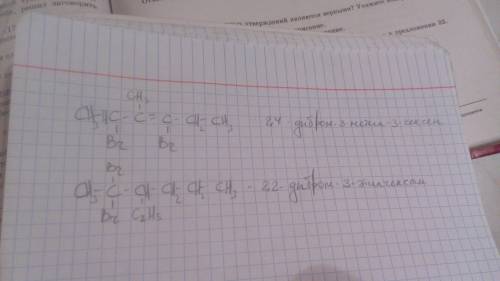 утверждений являются верными? Укажите
в предложении 22.
CH₃
CH₃-HC-C=C-CH₂-CH₃ 2,4-дибром-3-метил-3-гексен
Br Br
Br
CH₃-C-CH-CH₂-CH₂-CH₃ - 2,2-дибром-3-этилгексан
Br C₂H₅